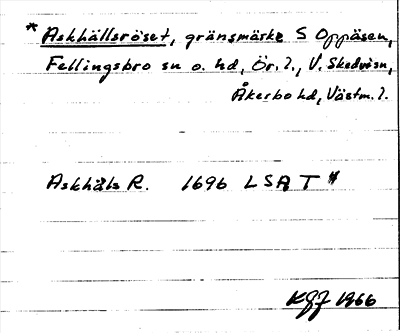 * Askhällsröset, gränsmärke S Oppåsen,
Fellingsbro sn o. hd, Ör. l., V. Skedvi sn,
Åkerbo hd, Västm. l.
Askhåls R. 1696 LSA T*
KGJ 1966